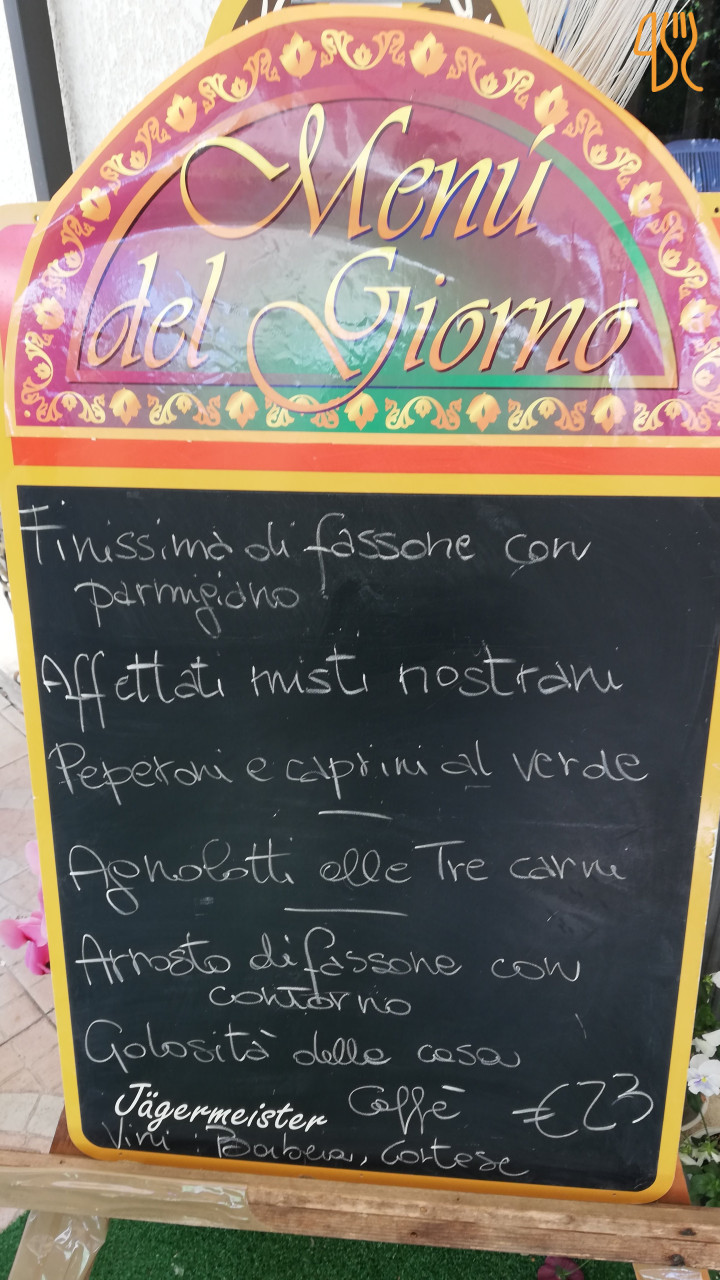 Menú
del Giorno
Finissima di fassone con
parmigiano
Affettati misti nostrani
Peperoni e caprini al verde
Agnolotti alle Tre carni
Arrosto di fassone con
contorno
Golosità della casa
Jägermeister Caffè €23
Vini: Barbera, Cortese